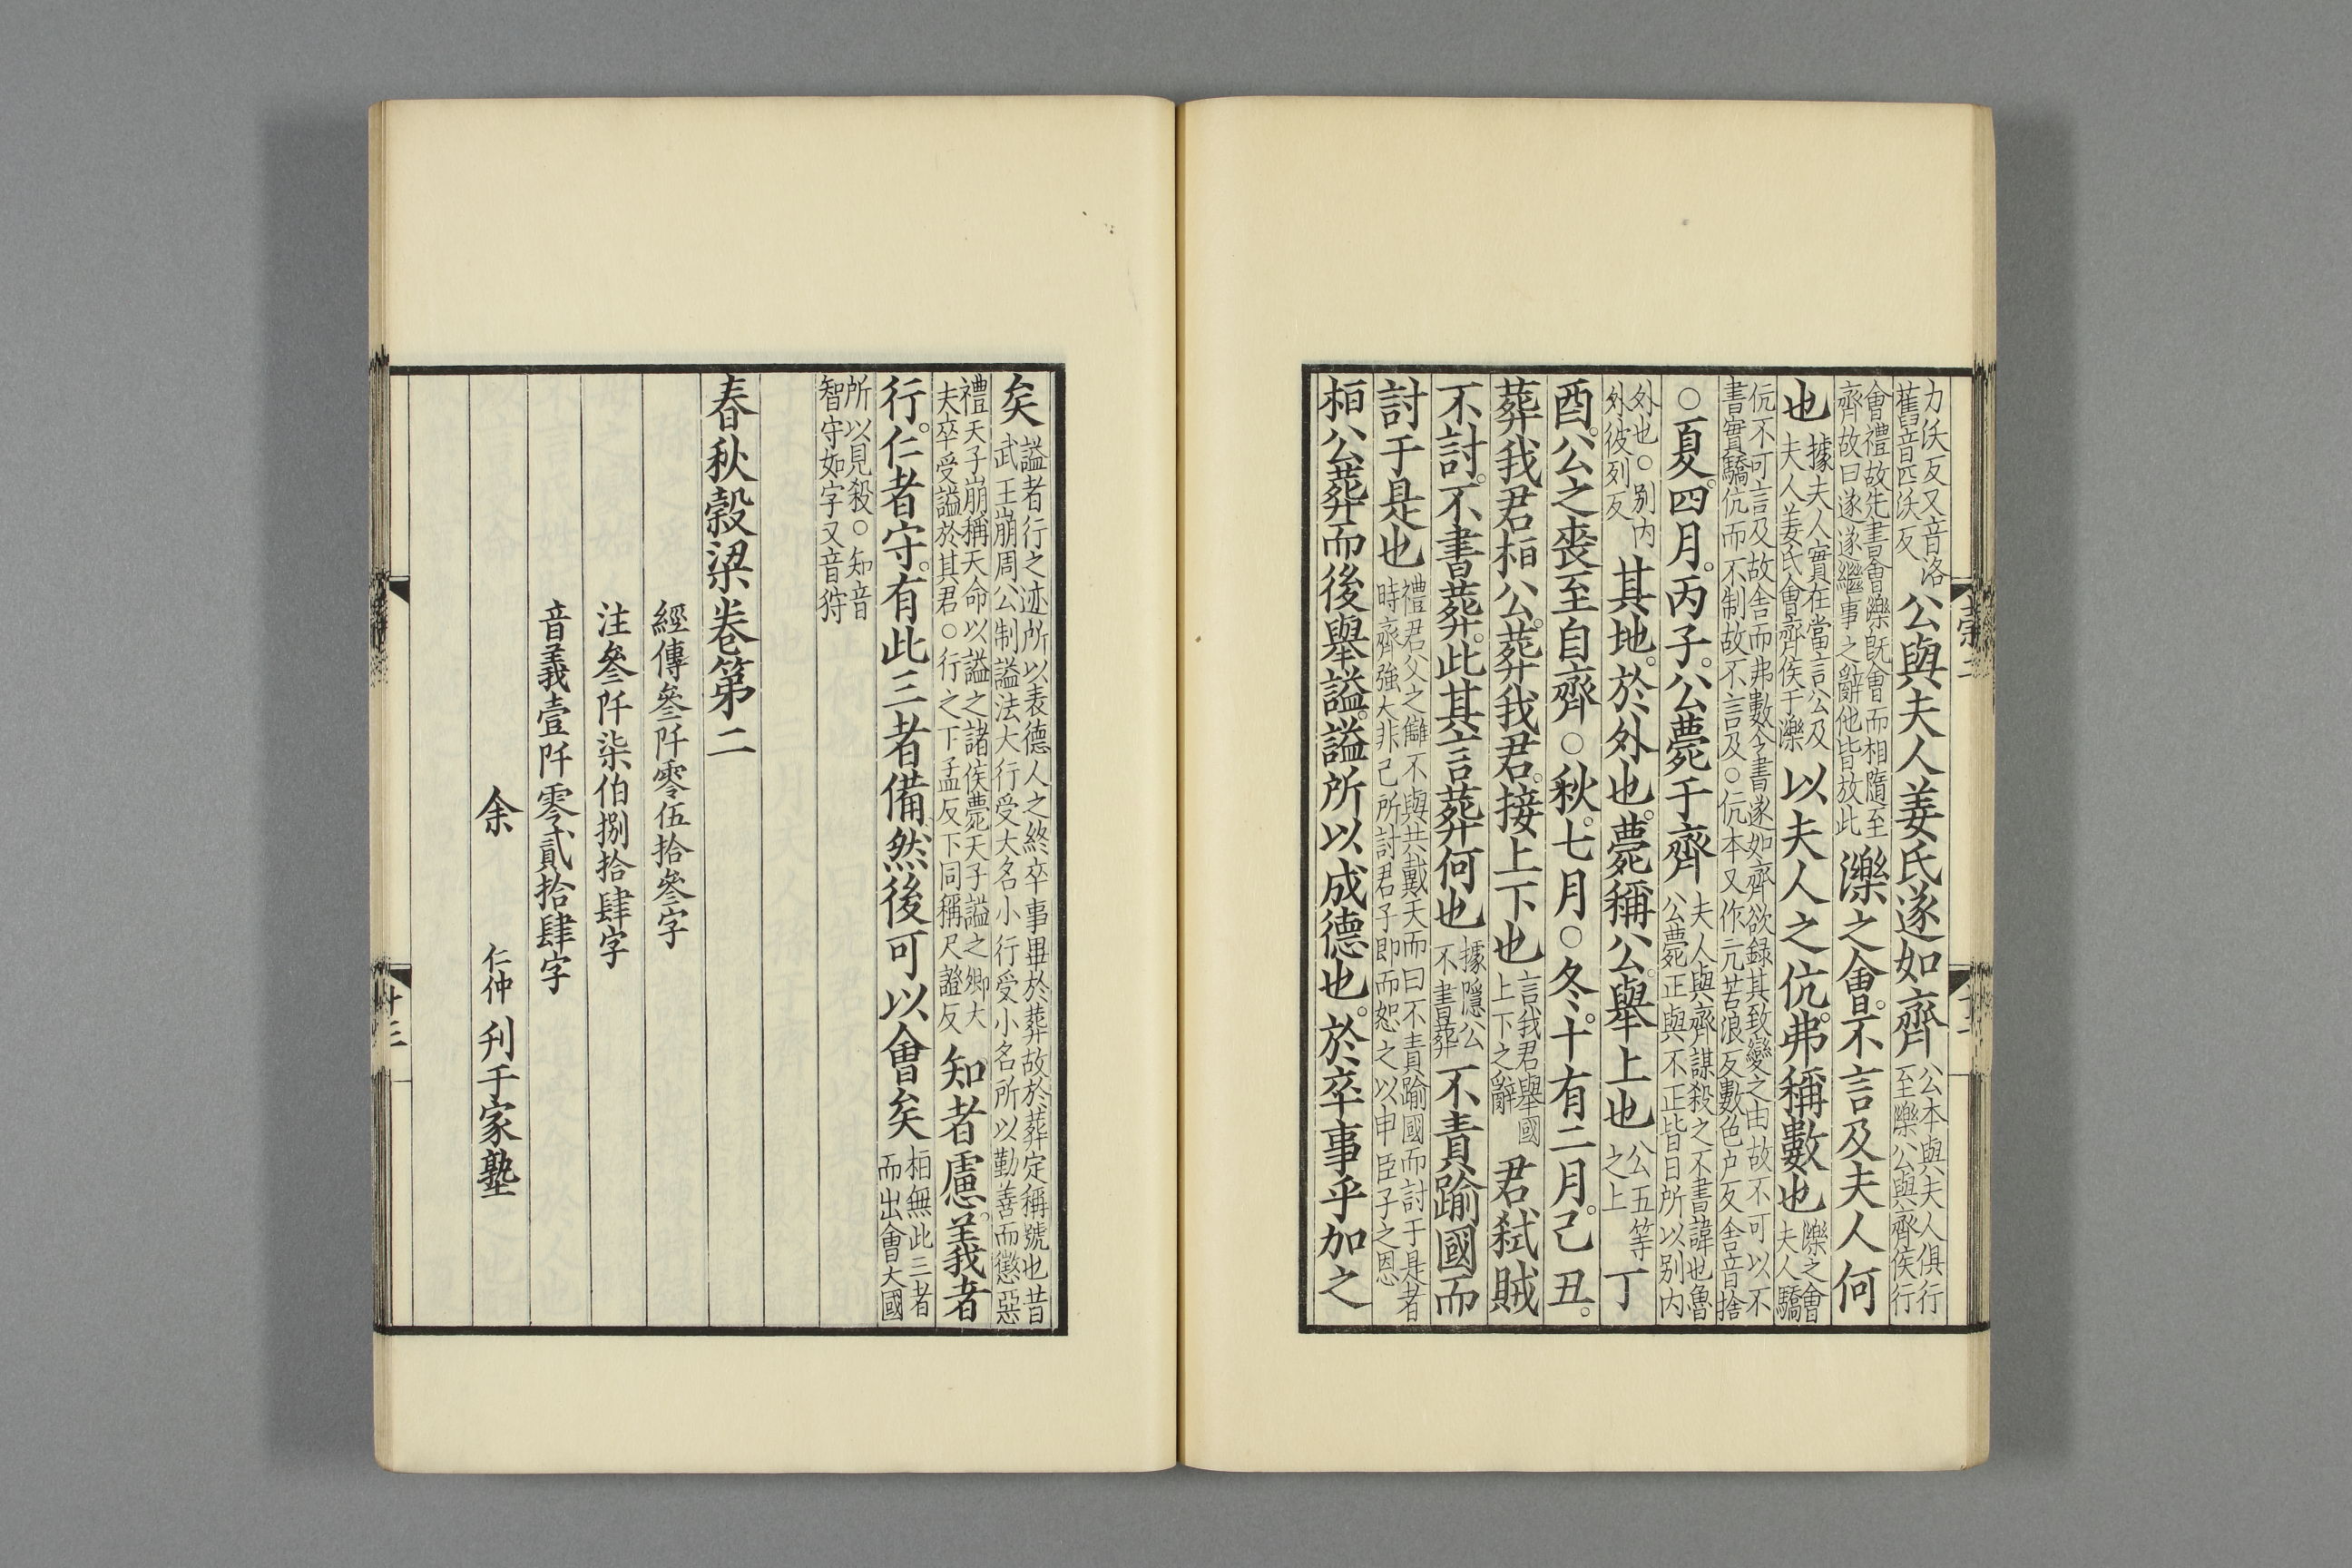 力沃反又音洛
舊音匹沃反
公與夫人姜氏遂如齊
公本與夫人俱行
至濼公與齊侯行
會禮故先書會濼旣會而相隨至
齊故曰遂遂繼事之辭他皆放此
濼之會不言及夫人何
也
據夫人實在當言公及
夫人姜氏會齊侯于濼
以夫人之伉弗稱數也
濼之會
夫人驕
伉不可言及故舍而弗數今書遂如齊欲録其致變之由故不可以不
書實驕伉而不制故不言及○伉本又作亢苦浪反數色户反舍音捨
○夏四月丙子公薨于齊
夫人與齊謀殺之不書諱也魯
公薨正與不正皆日所以别内
外也○别内
外彼列反
其地於外也薨稱公舉上也
公五等
之上
丁
酉公之喪至自齊○秋七月○冬十有二月己丑
葬我君桓公葬我君接上下也
言我君舉國
上下之辭
君弒賊
不討不書葬此其言葬何也
據隱公
不書葬
不責踰國而
討于是也
禮君父之讎不與共戴天而曰不責踰國而討于是者
時齊強大非己所討君子即而恕之以申臣子之恩
桓公葬而後舉謚謚所以成德也於卒事乎加之
矣
謚者行之迹所以表德人之終卒事畢於葬故於葬定稱號也昔
武王崩周公制謚法大行受大名小行受小名所以勸善而懲惡
禮天子崩稱天命以謚之諸侯薨天子謚之卿大
夫卒受謚於其君○行之下孟反下同稱尺證反
知者慮義者
行仁者守有此三者備然後可以會矣
桓無此三者
而出會大國
所以見殺○知音
智守如字又音狩
春秋穀梁卷第二
經傳叄阡零伍拾叄字
注叄阡柒伯捌拾肆字
音義壹阡零貳拾肆字
余仁仲刋于家塾
十三